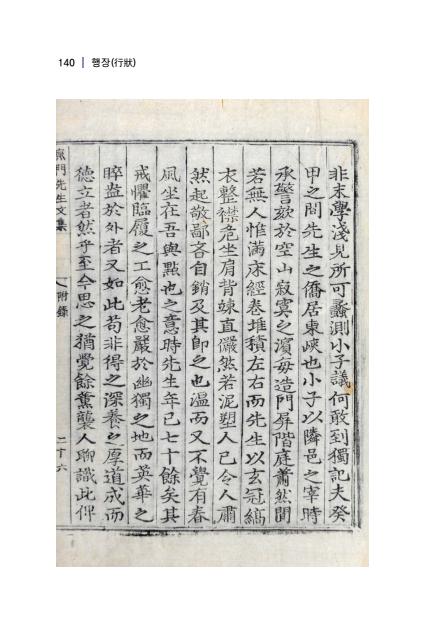 140 | 행장(行狀)
非末學淺見所可蠡測小子議何敢到獨記夫癸
甲之間先生之僑居東峽也小子以隣邑之宰時
承警欬於空山寂寞之濱每造門屏階庭蕭然闃
若無人惟滿床經卷堆積左右而先生以玄冠縞
衣整襟危坐肩背竦直儼然若泥塑人已令人肅
然起敬鄙吝自銷及其卽之也溫而又不覺有春
風坐在吾與點也之意時先生年已七十餘矣其
戒懼臨履之工愈老愈嚴於幽獨之地而英華之
睟盎於外者又如此苟非得之深養之厚道成而
德立者然乎至今思之猶覺餘薰襲人聊識此俾
門先生文集
附錄
二十六